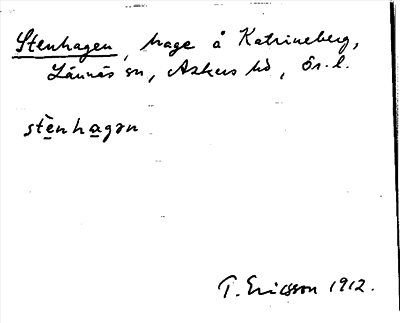 Stenhagen, hage å Katrineberg,
Lännäs sn, Askers hd, Ör. l.
stènhagən
T. Ericsson 1912.